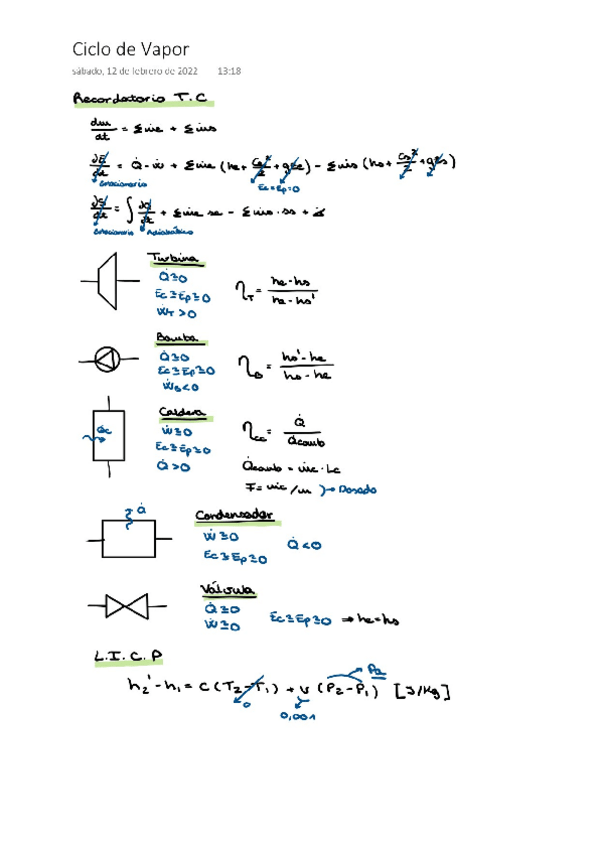 Ciclo de Vapor
sábado, 12 de febrero de 2022 13:18
Recordatorio T.C
dm/dt = Σṁe + Σṁs
dE/dt = Q̇ - Ẇ + Σṁe (he + Ce²/2 + gze) - Σṁs (hs + Cs²/2 + gzs)
Estacionario Ec=Ep=0
dS/dt = ∫ dQ/dt + Σṁe se - Σṁs·ss + σ̇
Estacionario Adiabático
Turbina
Q̇≅0
Ec≅Ep≅0
ẆT>0
ηT = he-hs / he-hs'
Bomba
Q̇≅0
Ec≅Ep≅0
ẆB<0
ηB = hs'-he / hs-he
Caldera
Q̇c
Ẇ≅0
Ec≅Ep≅0
Q̇>0
ηcc = Q̇ / Q̇comb
Q̇comb = ṁc·Lc
F = ṁc/ṁ → Dosado
Q̇
Condensador
Ẇ≅0
Ec≅Ep≅0
Q̇<0
Válvula
Q̇≅0
Ẇ≅0
Ec≅Ep≅0 → he=hs
L.I.C.P
Pa
h2'-h1 = C(T2-T1) + v (P2-P1) [J/Kg]
0
0,001